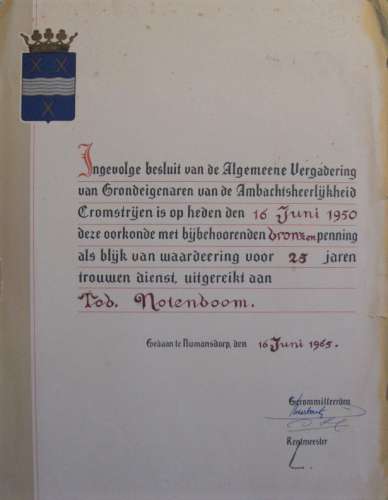 Ingevolge besluit van de Algemeene Vergadering
van Grondeigenaren van de Ambachtsheerlijkheid
Cromstrijen is op heden den 16 Juni 1950
deze oorkonde met bijbehoorenden bronzen penning
als blijk van waardeering voor 25 jaren
trouwen dienst, uitgereikt aan
Tob. Notenboom.
Gedaan te Numansdorp, den 16 Juni 1965.
Gecommitteerden
Rentmeester